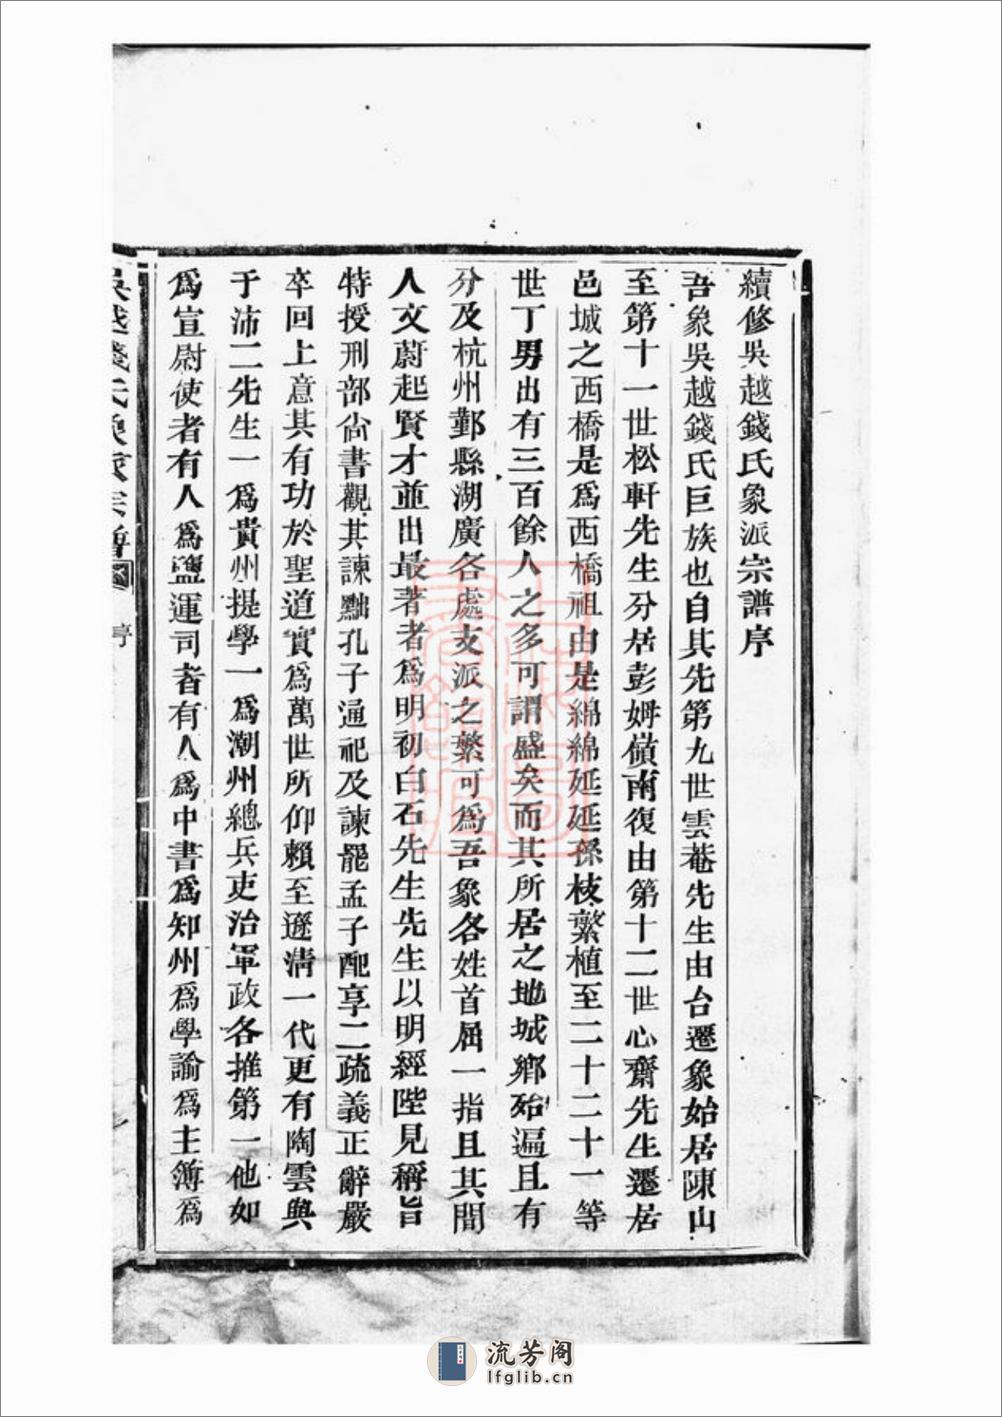 續修吳越錢氏象派宗譜序
吾象吳越錢氏巨族也自其先第九世雲菴先生由台遷象始居陳山
至第十一世松軒先生分居彭姆嶺南復由第十二世心齋先生遷居
邑城之西橋是爲西橋祖由是綿綿延延孫枝繁植至二十二十一等
世丁男出有三百餘人之多可謂盛矣而其所居之地城鄉殆遍且有
分及杭州鄞縣湖廣各處支派之繁可爲吾象各姓首屈一指且其間
人文蔚起賢才並出最著者爲明初白石先生先生以明經陛見稱旨
特授刑部尙書觀其諫黜孔子通祀及諫罷孟子配享二疏義正辭嚴
卒回上意其有功於聖道實爲萬世所仰賴至遜淸一代更有陶雲與
于沛二先生一爲貴州提學一爲潮州總兵吏治軍政各推第一他如
爲宣尉使者有人爲鹽運司者有人爲中書爲知州爲學諭爲主簿爲
吳越錢氏象派宗譜 序
流芳阁
lfglib.cn